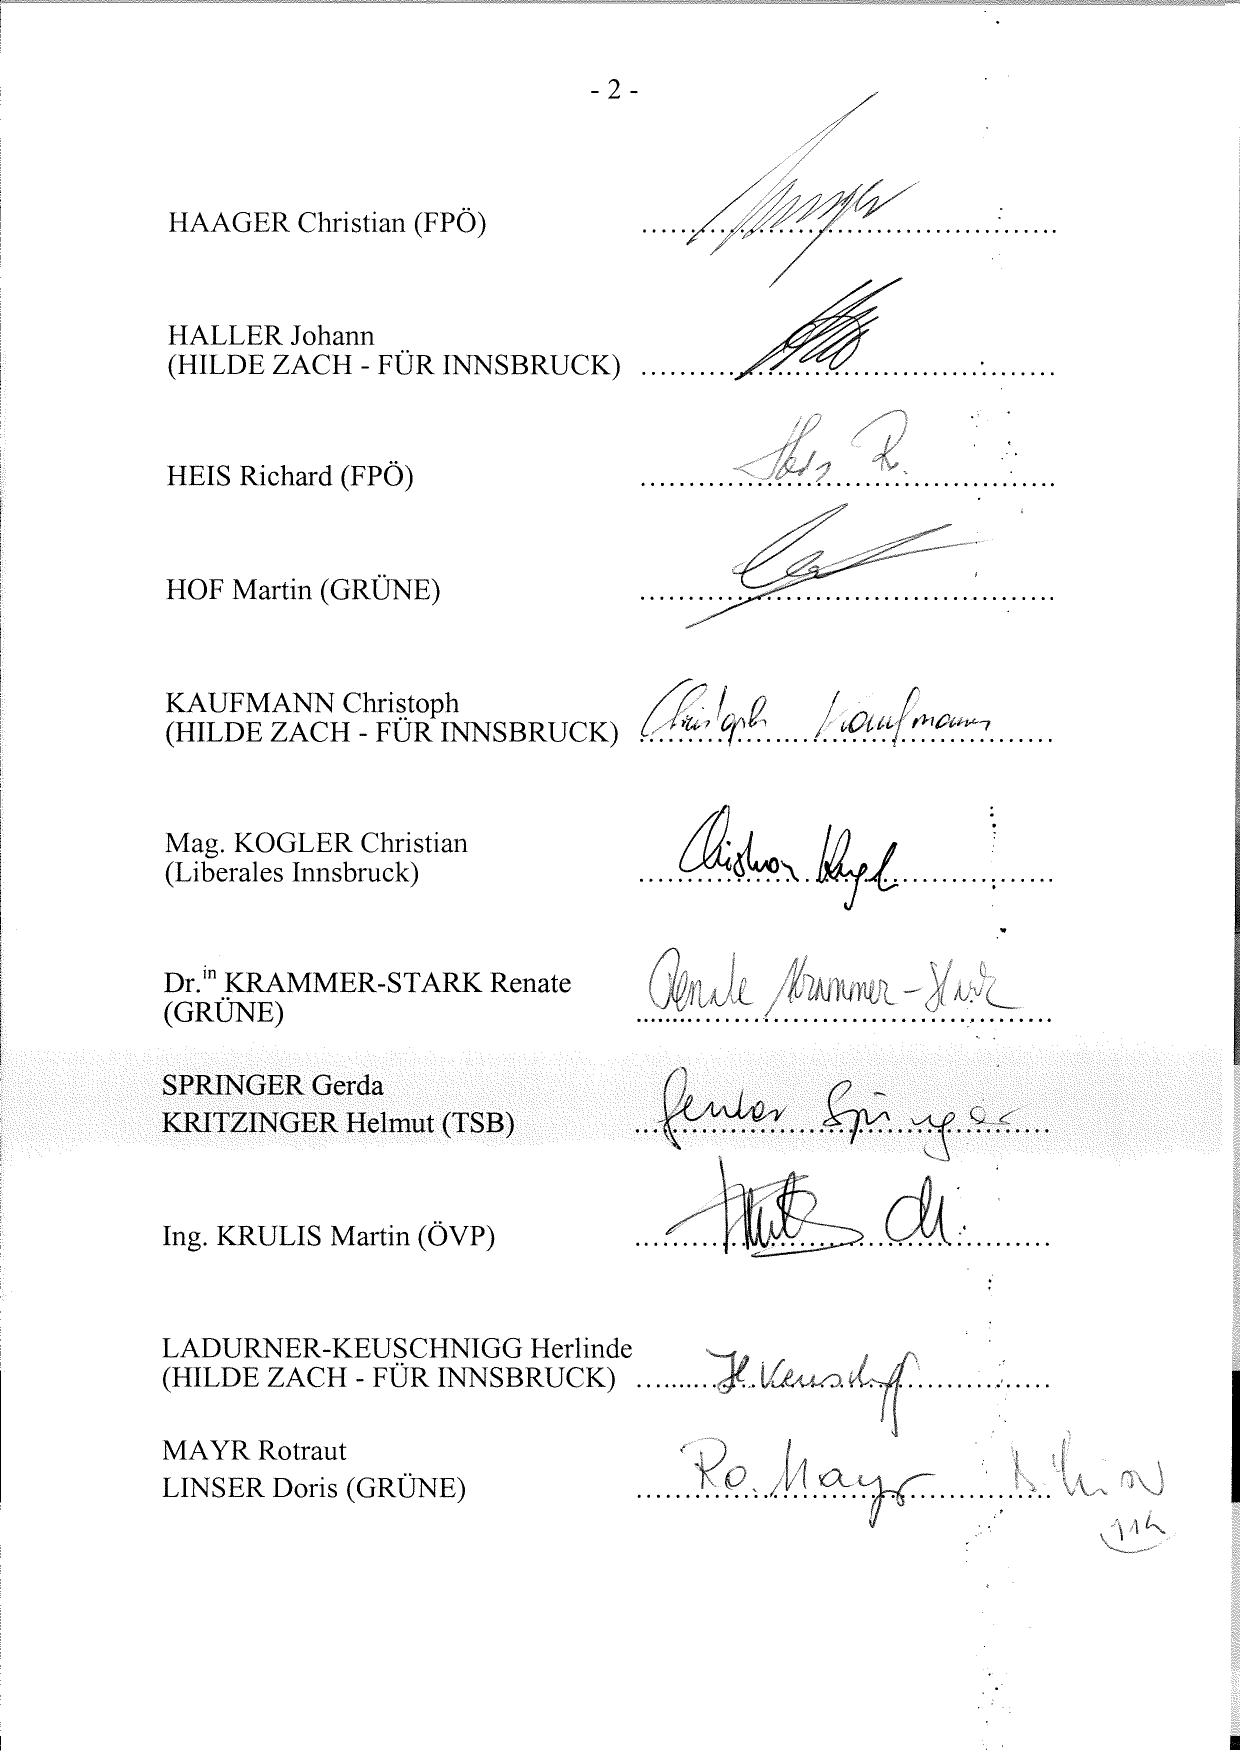 - 2 -
HAAGER Christian (FPÖ)
HALLER Johann
(HILDE ZACH - FÜR INNSBRUCK)
HEIS Richard (FPÖ)
Heis R.
HOF Martin (GRÜNE)
KAUFMANN Christoph
(HILDE ZACH - FÜR INNSBRUCK) Christoph Kaufmann
Mag. KOGLER Christian
(Liberales Innsbruck) Christian
Dr.in KRAMMER-STARK Renate
(GRÜNE) Renate Krammer-Stark
SPRINGER Gerda
KRITZINGER Helmut (TSB) Springer
Ing. KRULIS Martin (ÖVP)
LADURNER-KEUSCHNIGG Herlinde
(HILDE ZACH - FÜR INNSBRUCK) H. Keuschnigg
MAYR Rotraut
LINSER Doris (GRÜNE) Ro. Mayr